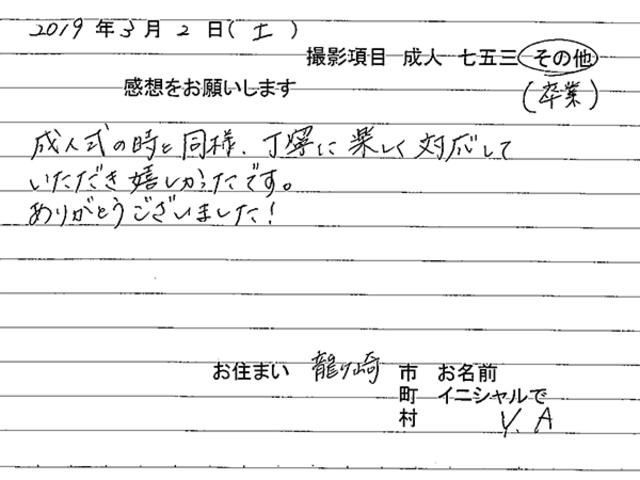 2019 年 3 月 2 日 ( 土 )
撮影項目 成人 七五三 その他
感想をお願いします (卒業)
成人式の時と同様、丁寧に楽しく対応して
いただき嬉しかったです。
ありがとうございました!
お住まい 龍ヶ崎 市 お名前
町 イニシャルで
村 Y. A